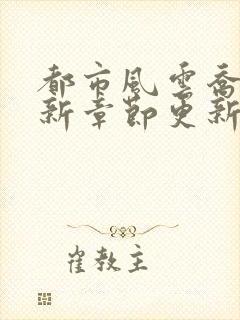 都市風雲喬
新章節更新
崔教主